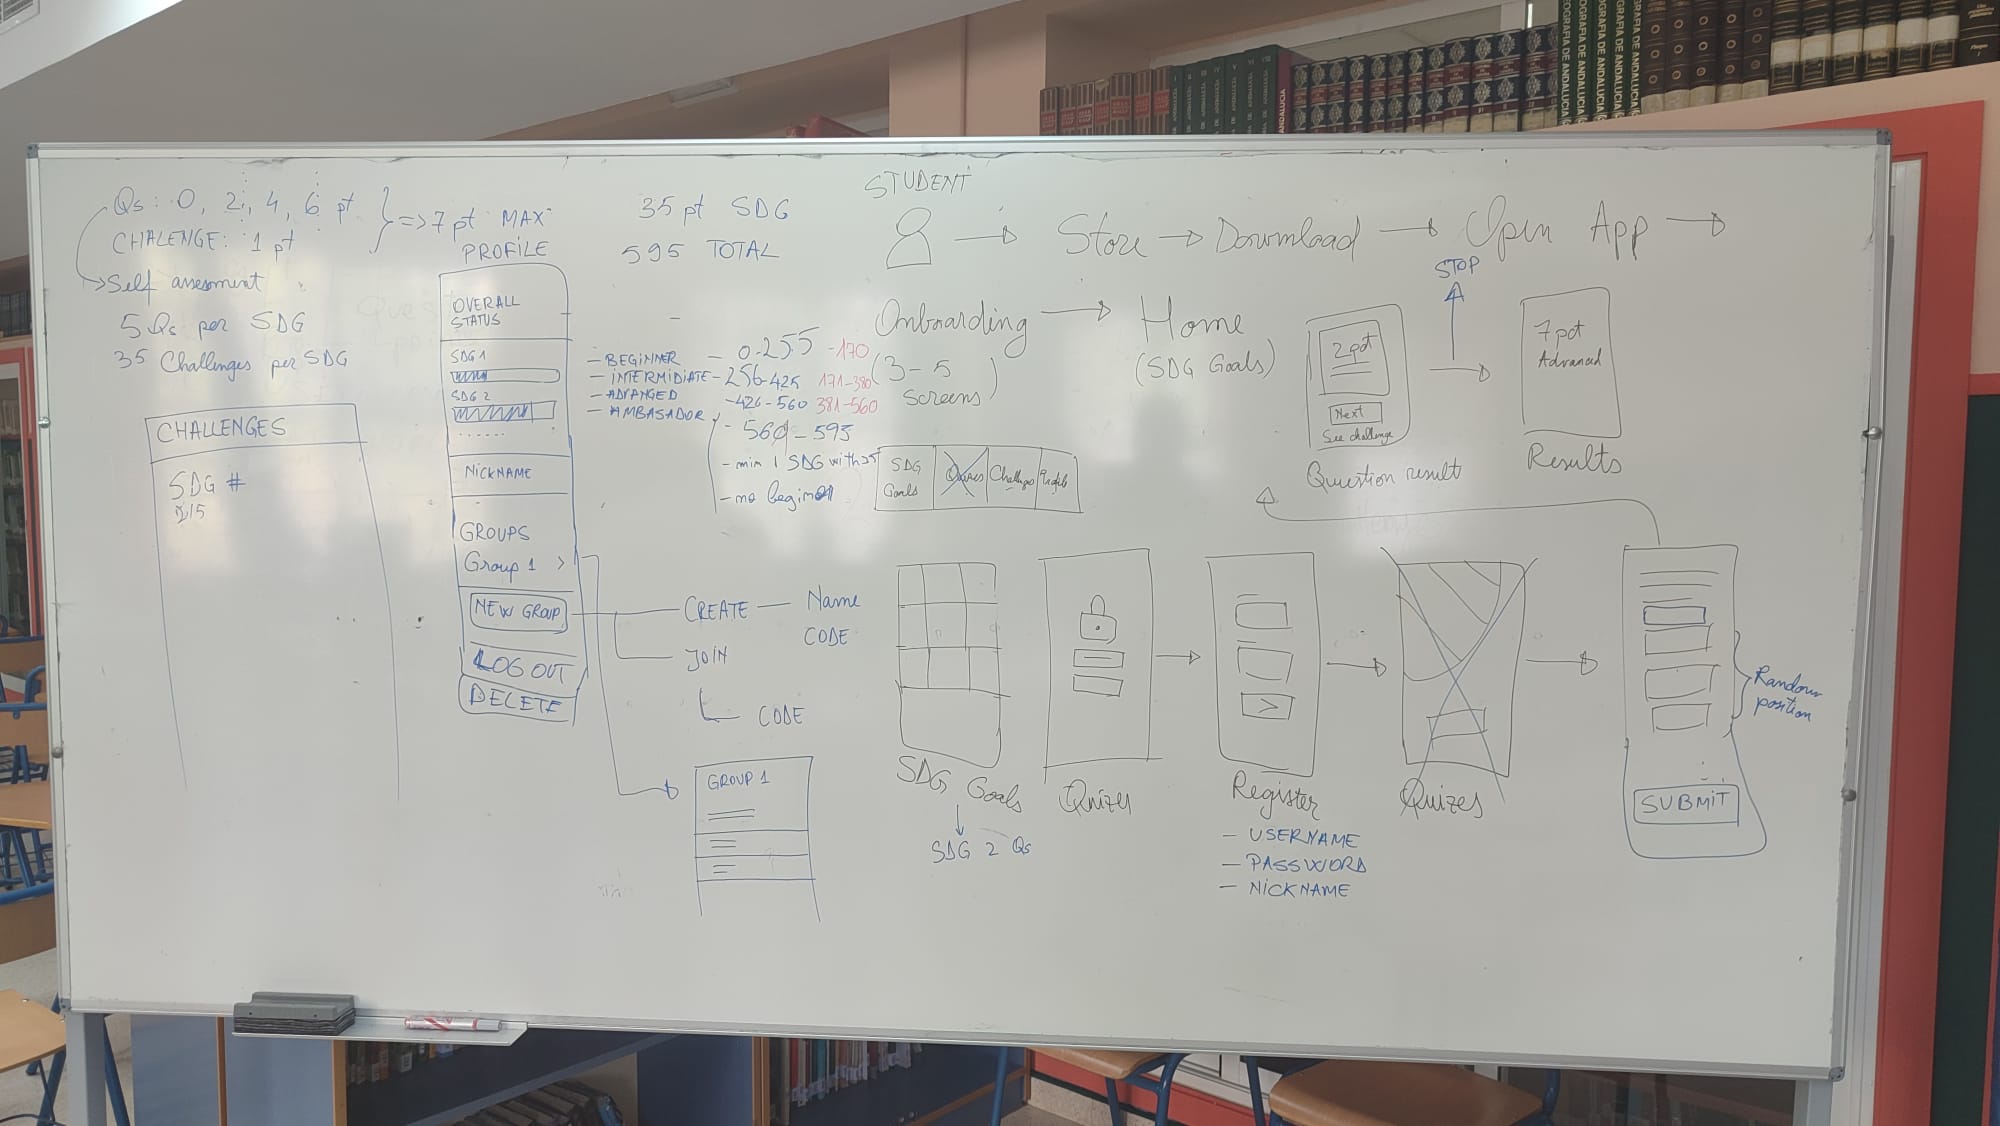 Qs: 0, 2, 4, 6 pt
CHALENGE: 1 pt
=> 7 pt MAX
→ Self assesment
5 Qs per SDG
35 Challenges per SDG
CHALLENGES
SDG #
PROFILE
OVERALL
STATUS
SDG 1
SDG 2
......
NICKNAME
GROUPS
Group 1 >
NEW GROUP
LOG OUT
DELETE
35 pt SDG
595 TOTAL
- BEGINNER - 0-255 -170
- INTERMIDIATE - 256-425 171-380
- ADVANCED - 426-560 381-560
- AMBASADOR
- min 1 SDG with 35
- no beginner
CREATE — Name
CODE
JOIN
CODE
GROUP 1
STUDENT
→ Store → Download → Open App →
Onboarding → Home
(3-5
screens)
(SDG Goals)
SDG
Goals
Quizes
Challenges
Profile
STOP
2 pot
Next
See challenge
Question result
7 pot
Advanced
Results
SDG Goals
SDG 2 Qs
Quizes
Register
- USERNAME
- PASSWORD
- NICKNAME
Quizes
Random
position
SUBMIT
GEOGRAFIA DE ANDALUCIA
GEOGRAFIA DE ANDALUCIA
GEOGRAFIA DE ANDALUCIA